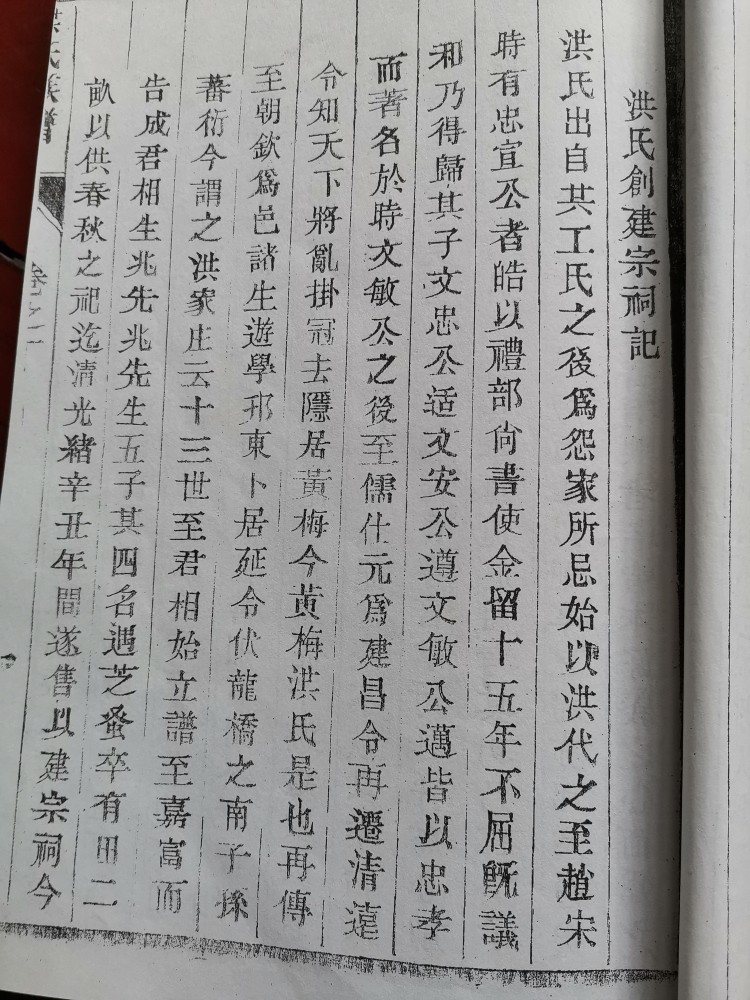 洪氏創建宗祠記
洪氏出自共工氏之後爲怨家所忌始以洪代之至趙宋
時有忠宣公者皓以禮部尙書使金留十五年不屈旣議
和乃得歸其子文忠公适文安公遵文敏公邁皆以忠孝
而著名於時文敏公之後至儒仕元爲建昌令再遷清遠
令知天下將亂掛冠去隱居黃梅今黃梅洪氏是也再傳
至朝欽爲邑諸生遊學邗東卜居延令伏龍橋之南子孫
蕃衍今謂之洪家庄云十三世至君相始立譜至嘉富而
告成君相生兆先兆先生五子其四名遇芝蚤卒有田二
畝以供春秋之祀迄清光緒辛丑年間遂售以建宗祠今
洪氏族譜
卷之一